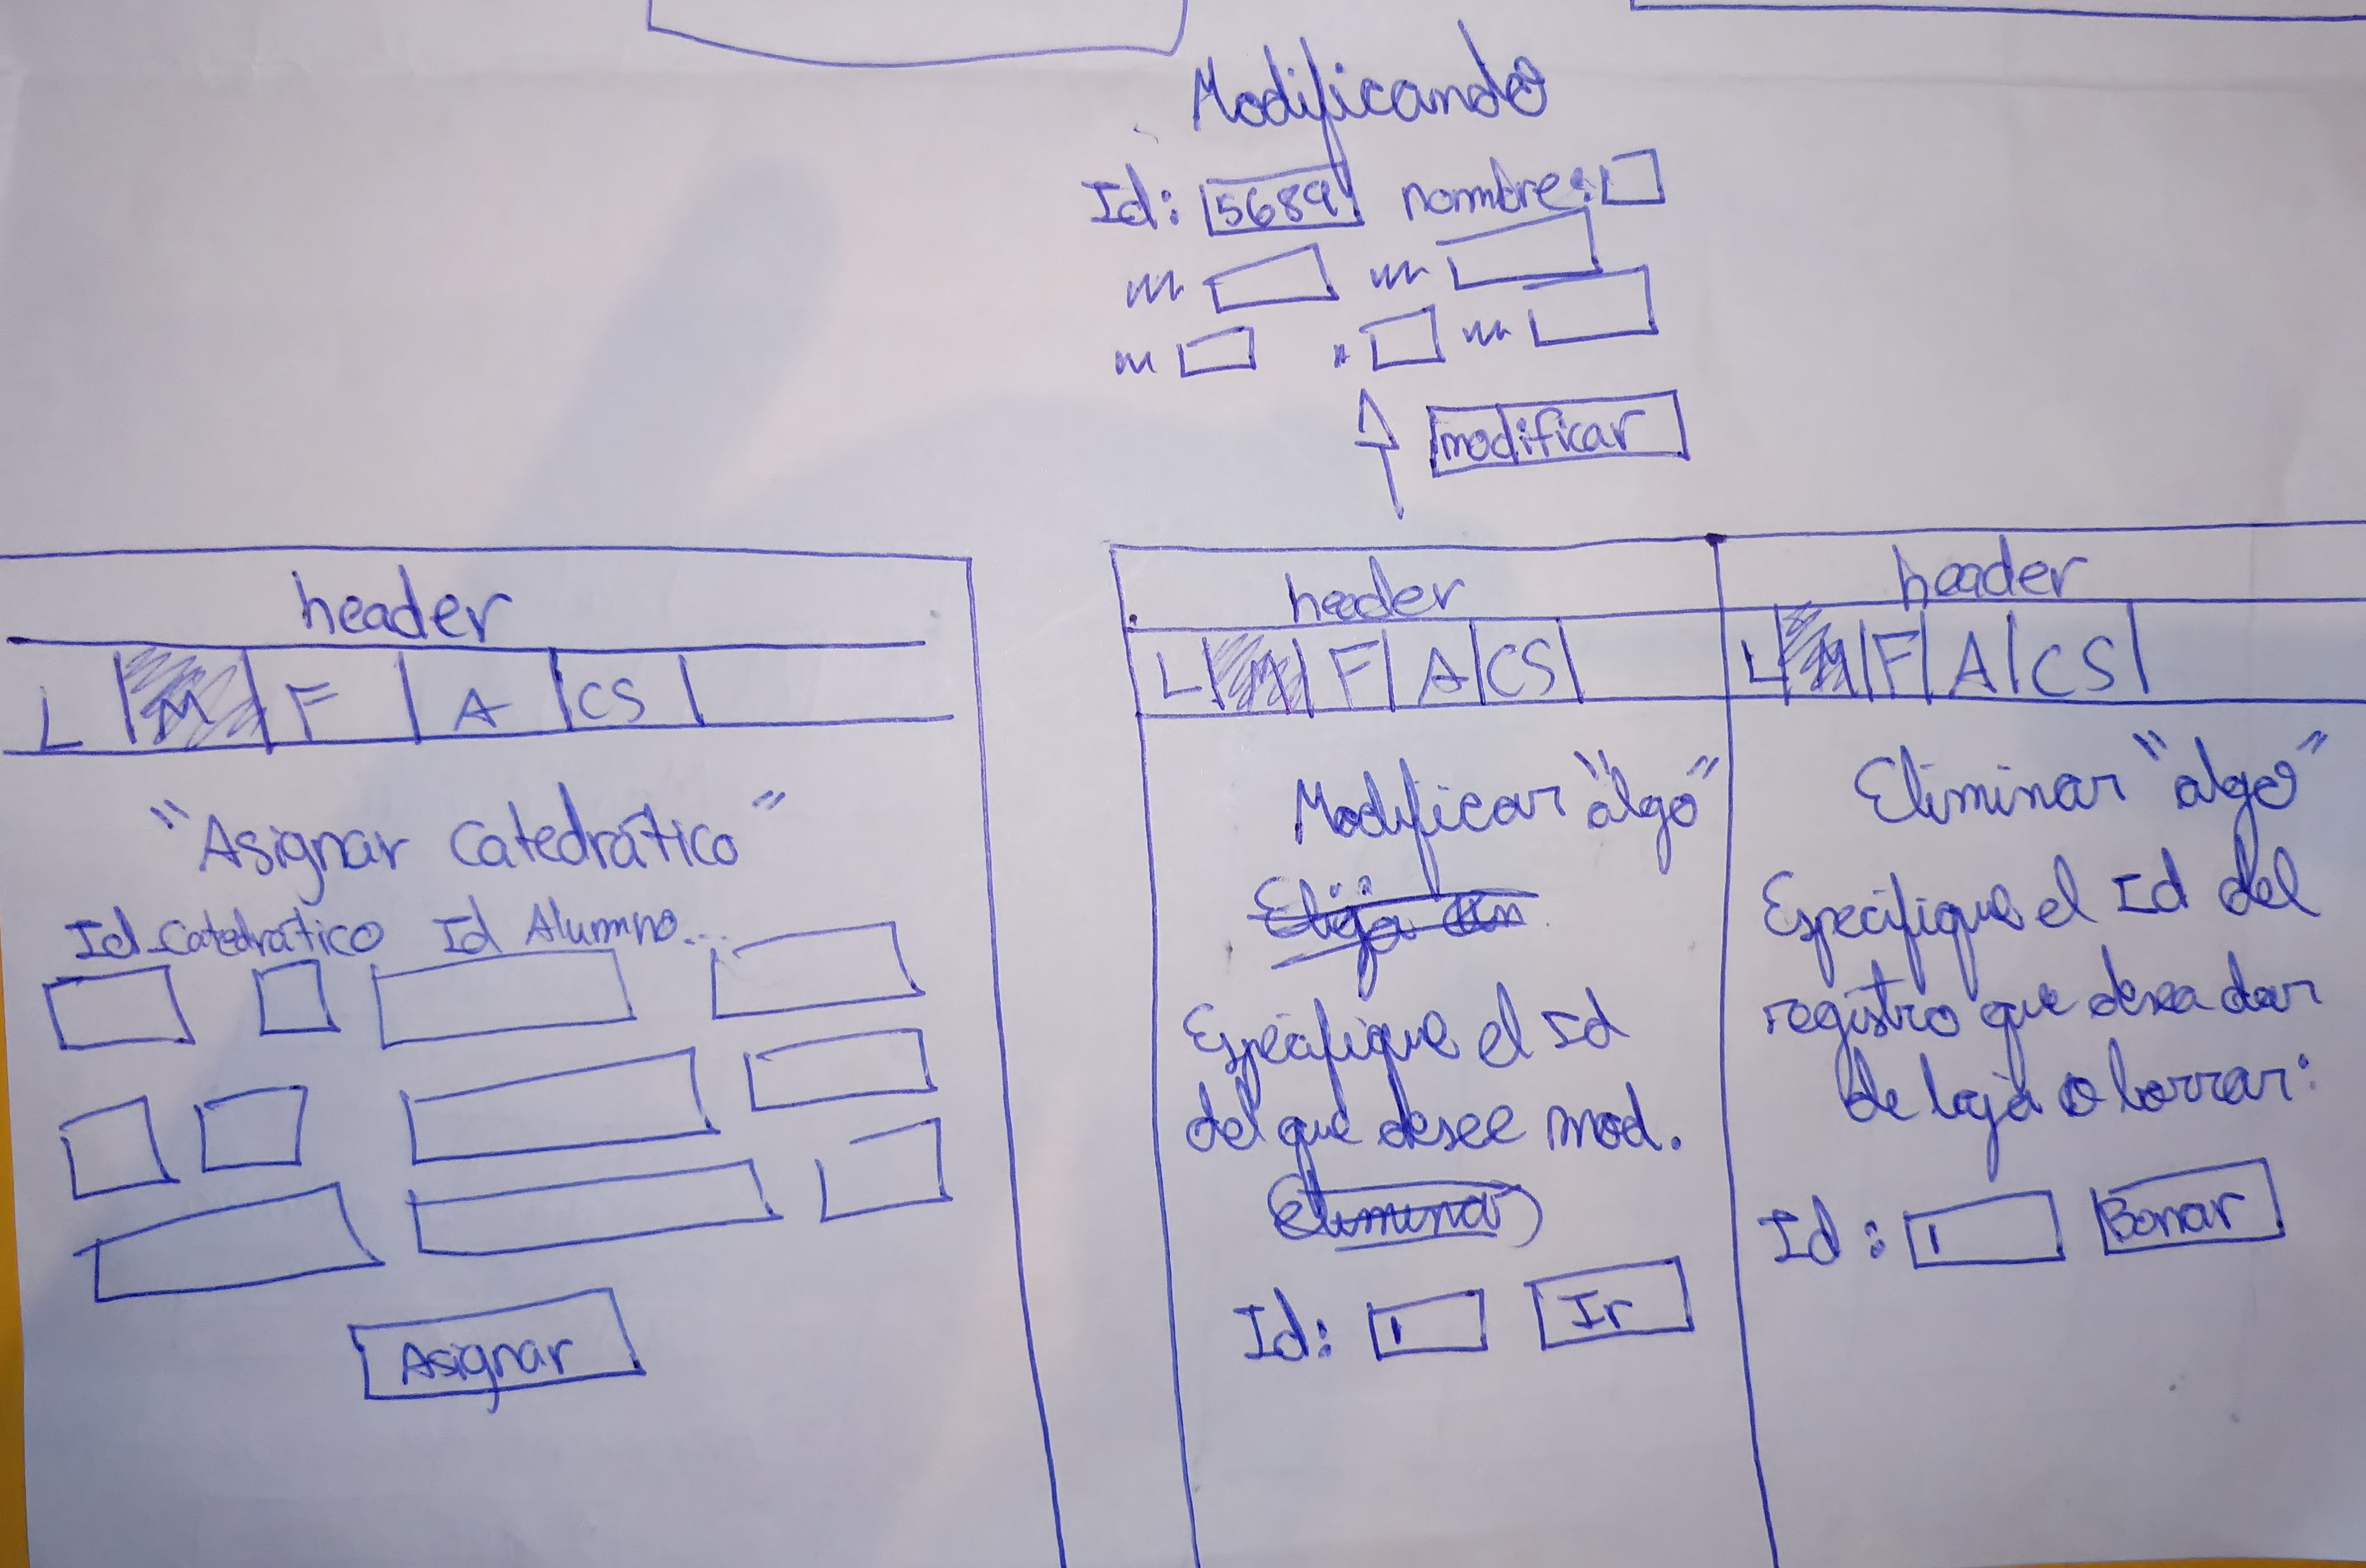 Modificando
Id: 5689 nombre:
modificar
header
L M F A CS
"Asignar Catedrático"
Id_Catedrático Id Alumno...
Asignar
header
L M F A CS
Modificar "algo"
Elija un
Especifique el Id
del que desee mod.
Elimina
Id: Ir
header
L M F A CS
Eliminar "algo"
Especifique el Id del
registro que desea dar
de baja o borrar:
Id: Borrar